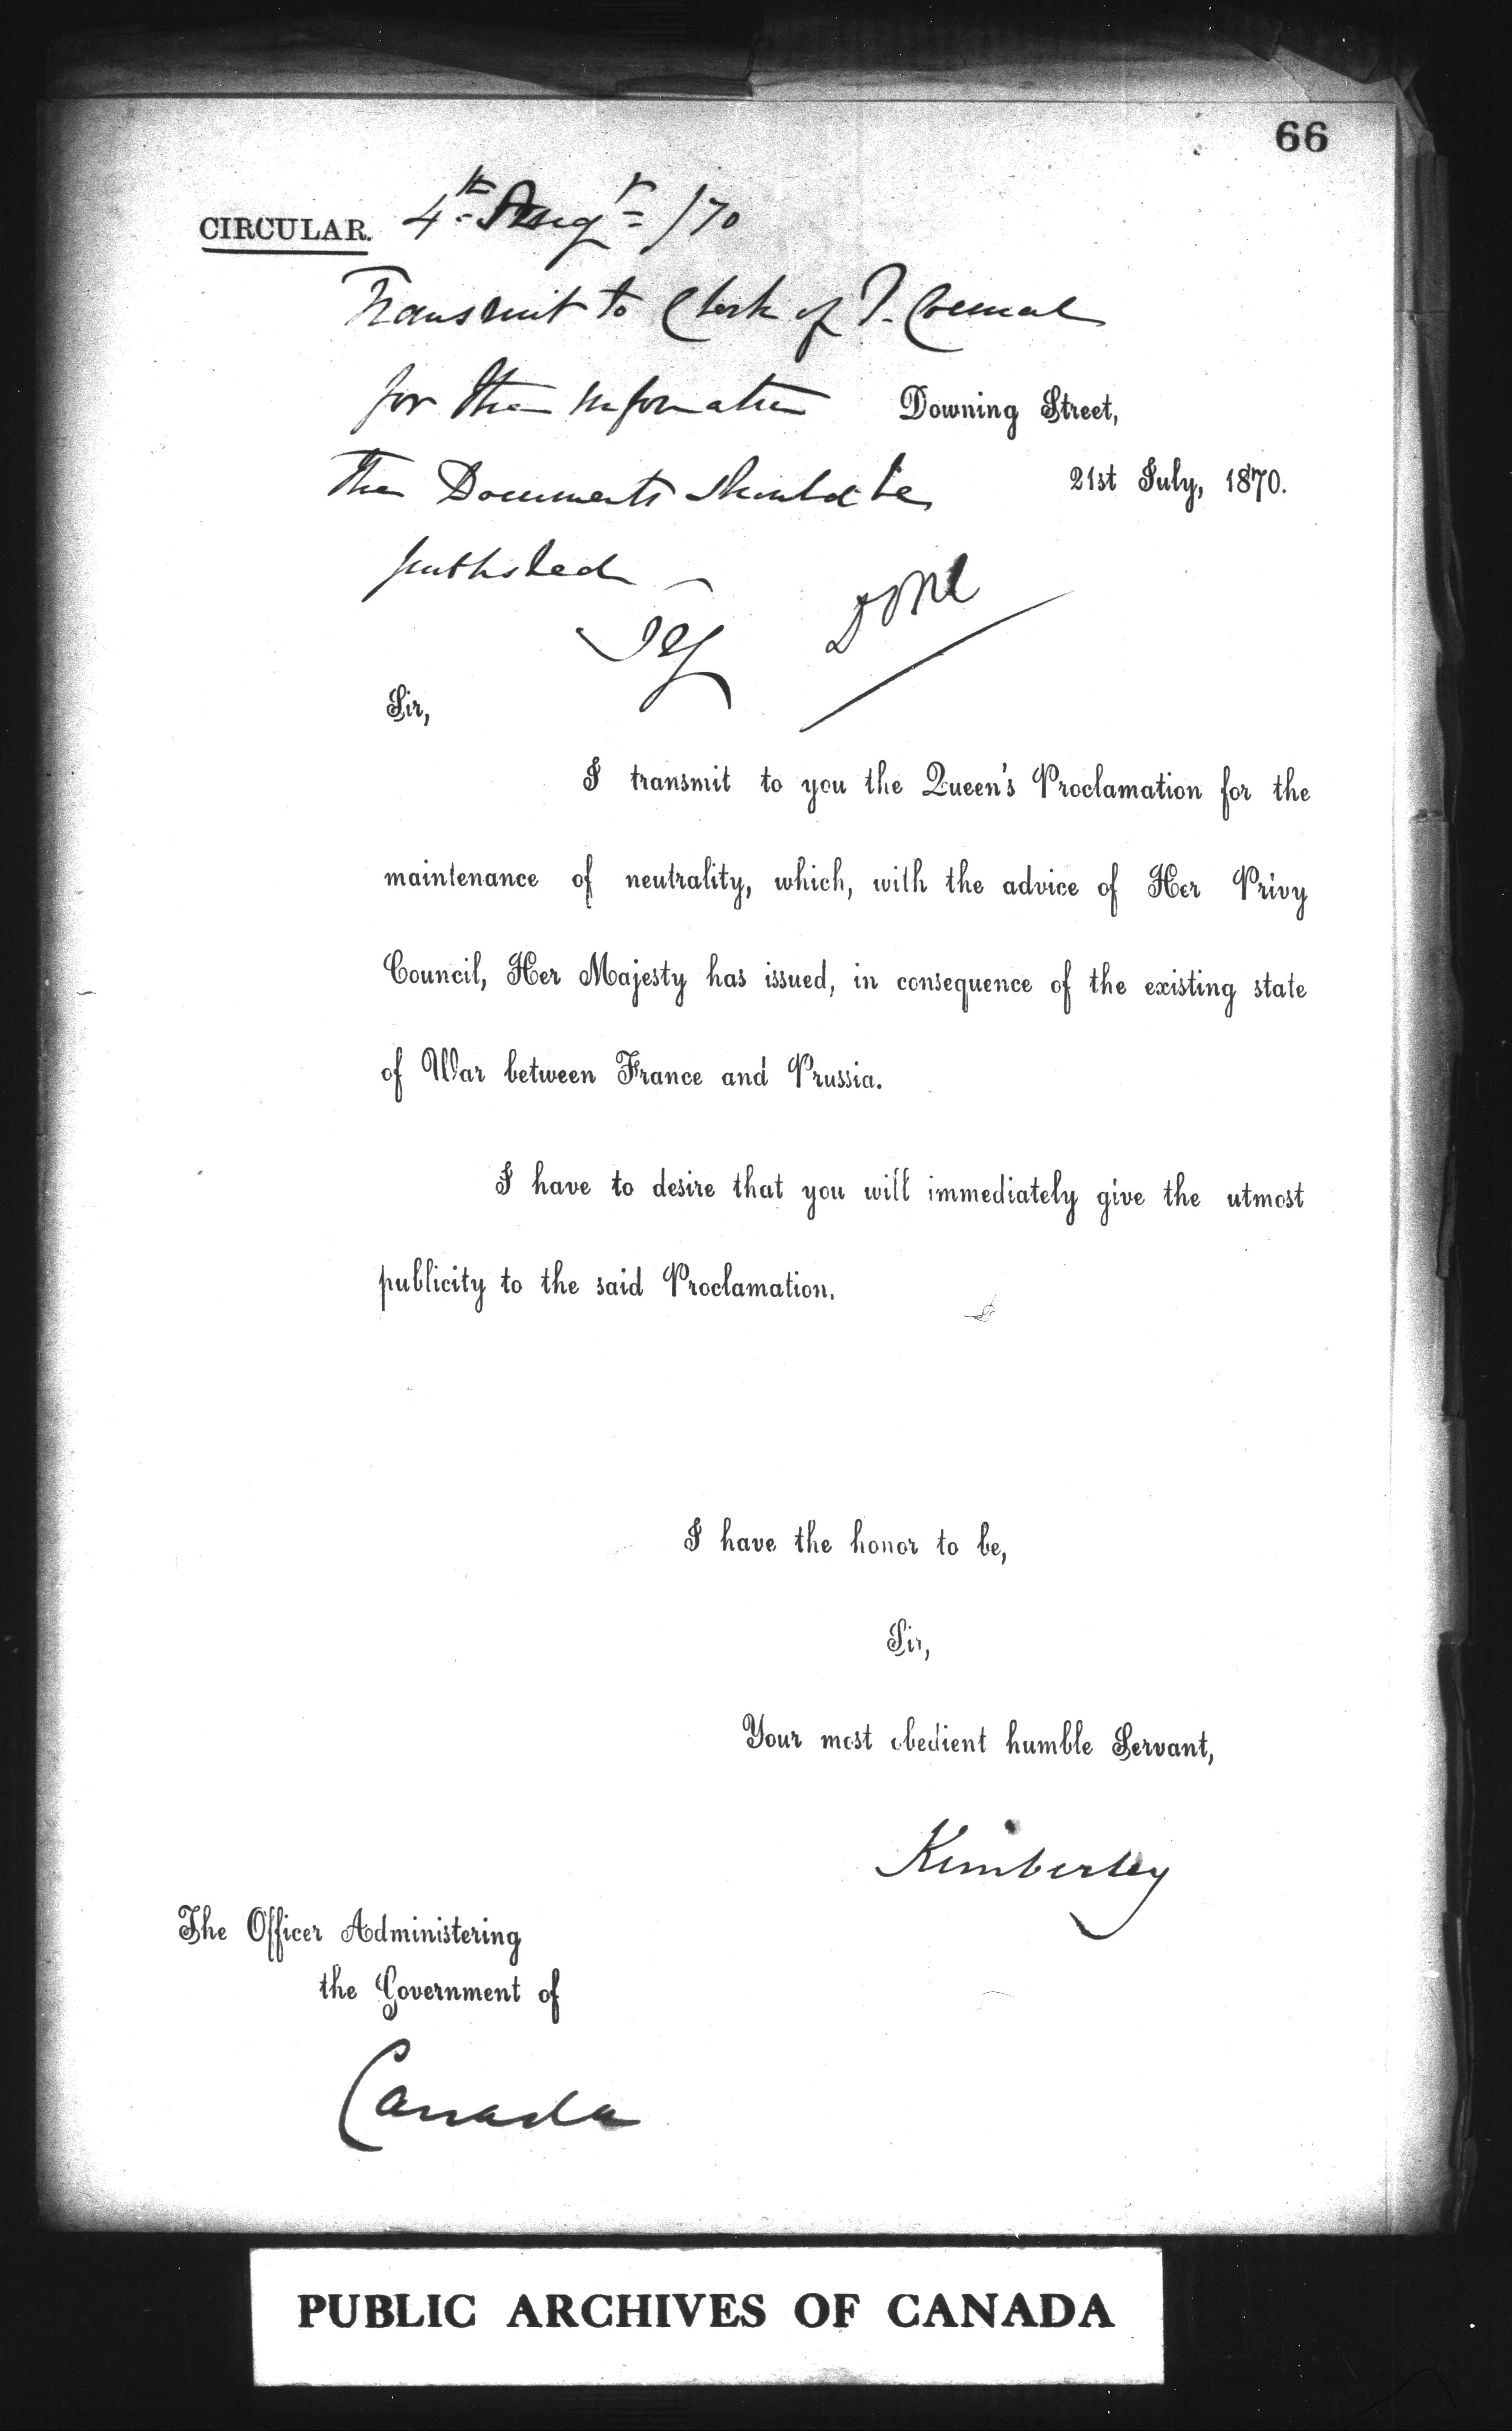 66
CIRCULAR. 4th Augt /70
Transmit to Clerk of P. Council
for the information
Downing Street,
The Documents should be
21st July, 1870.
published
Done
Sir,
I transmit to you the Queen's Proclamation for the
maintenance of neutrality, which, with the advice of Her Privy
Council, Her Majesty has issued, in consequence of the existing state
of War between France and Prussia.
I have to desire that you will immediately give the utmost
publicity to the said Proclamation.
I have the honor to be,
Sir,
Your most obedient humble Servant,
Kimberley
The Officer Administering
the Government of
Canada
PUBLIC ARCHIVES OF CANADA